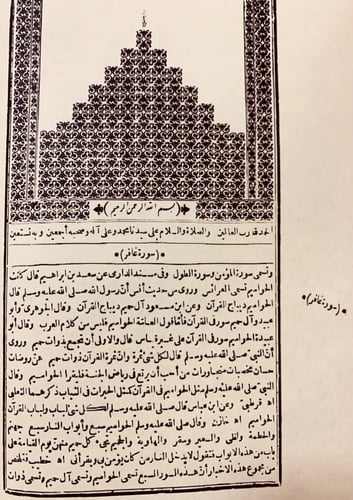 (بسم الله الرحمن الرحيم)
الحمد لله رب العالمين والصلاة والسلام على سيدنا محمد وعلى آله وصحبه أجمعين وبه نستعين
(سورة غافر)
(سورة غافر)
وتسمى سورة المؤمن وسورة الطول وفى مسند الدارمى عن سعد بن ابراهيم قال كانت
الحواميم تسمى العرائس وروى من حديث أنس أن رسول الله صلى الله عليه وسلم قال
الحواميم ديباج القرآن وعن ابن مسعود آل حم ديباج القرآن وقال الجوهرى وأبو
عبيدة آل حم سور فى القرآن فأما قول العامة الحواميم فليس من كلام العرب وقال أبو
عبيدة الحواميم سور فى القرآن على غير قياس قال والاولى أن تجمع بذوات حم وروى
أن النبى صلى الله عليه وسلم قال لكل شئ ثمرة وان ثمرة القرآن ذوات حم هن روضات
حسان مخصبات متجاورات من أحب أن يرتع فى رياض الجنة فليقرأ الحواميم وقال
النبى صلى الله عليه وسلم مثل الحواميم فى القرآن كمثل الحبرات فى الثياب ذكرهما الثعلبى
اه قرطبى وعن ابن عباس قال صلى الله عليه وسلم لكل شئ لباب ولباب القرآن
الحواميم اه خازن وقال صلى الله عليه وسلم الحواميم سبع وأبواب النار سبع جهنم
والحطمة ولظى والسعير وسقر والهاوية والجحيم تجىء كل حم منهن يوم القيامة على
باب من هذه الابواب فتقول لا يدخل النار من كان يؤمن بى ويقرأنى اه خطيب فتلخص
من مجموع هذه الاخبار أن هذه السور السبع تسمى الحواميم وتسمى آل حم وتسمى ذوات